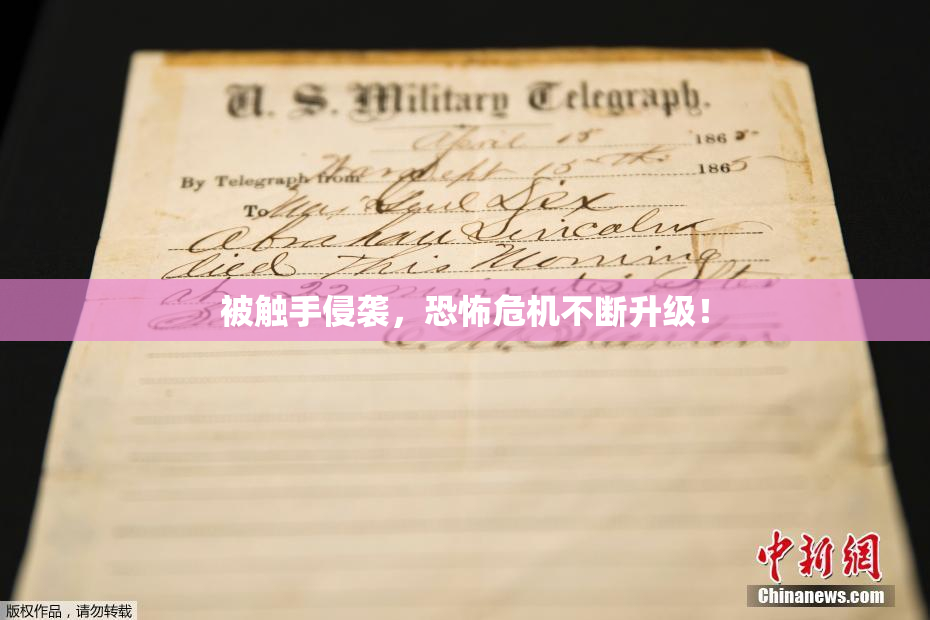 U. S. Military Telegraph.
April 15 1865
By Telegraph from War Dept 15th 1865
To Maj Genl Dix
Abraham Lincoln
died This Morning
at 22 minutes after
被触手侵袭，恐怖危机不断升级！
E. M. Stanton
中新网
Chinanews.com
版权作品，请勿转载